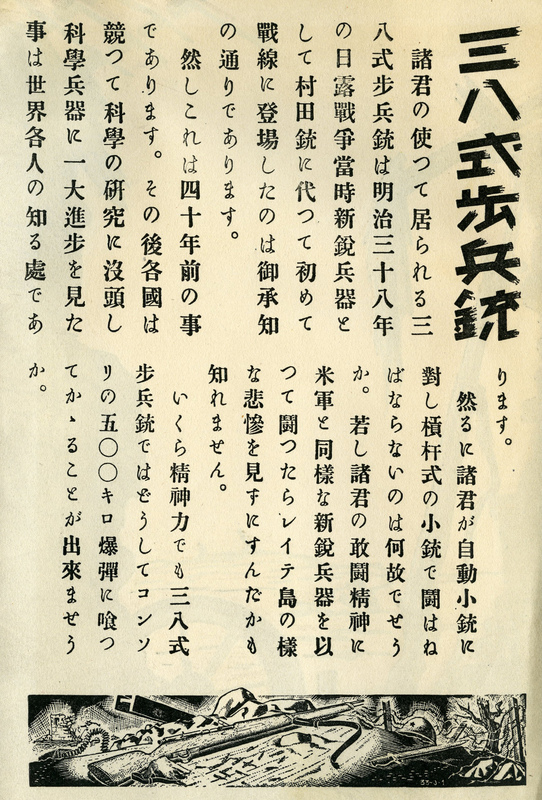 三八式歩兵銃
諸君の使つて居られる三
八式歩兵銃は明治三十八年
の日露戰爭當時新鋭兵器と
して村田銃に代つて初めて
戰線に登場したのは御承知
の通りであります。
然しこれは四十年前の事
であります。その後各國は
競つて科學の硏究に沒頭し
科學兵器に一大進歩を見た
事は世界各人の知る處であ
ります。
然るに諸君が自動小銃に
對し槓杆式の小銃で闘はね
ばならないのは何故でせう
か。若し諸君の敢闘精神に
米軍と同樣な新鋭兵器を以
つて闘つたらレイテ島の樣
な悲慘を見ずにすんだかも
知れません。
いくら精神力でも三八式
歩兵銃ではどうしてコンソ
リの五〇〇キロ爆彈に喰つ
てかゝることが出來ませう
か。
33-J-1